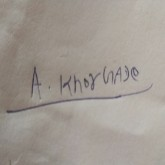 A. Khorgade